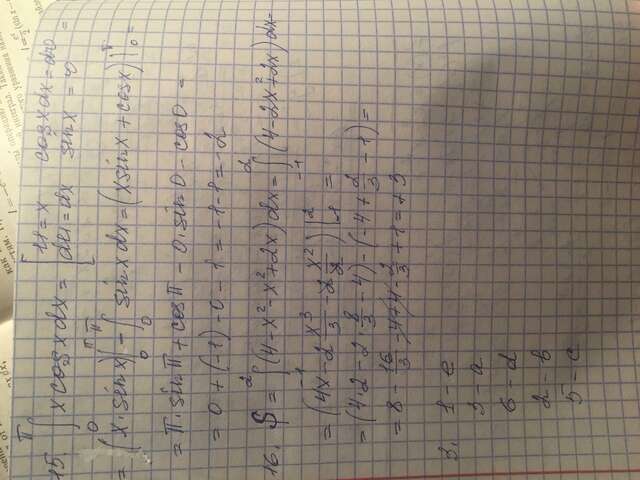 15. ∫₀^π x cosx dx = [u = x  cosx dx = dv
du = dx  sinx = v] =
= (x·sinx)|₀^π − ∫₀^π sinx dx = (x sinx + cosx)|₀^π =
= π·sinπ + cosπ − 0·sin0 − cos0 =
= 0 + (−1) − 0 − 1 = −1 − 1 = −2
16. S = ∫₋₁² (4 − x² − x² + 2x) dx = ∫₋₁² (4 − 2x² + 2x) dx =
= (4x − 2 x³/3 + 2 x²/2)|₋₁² =
= (4·2 − 2·8/3 − 4) − (−4 + 2/3 − 1) =
= 8 − 16/3 − 4 + 4 − 2/3 + 1 = +3
3. 1 − e
3 − a
6 − d
2 − b
5 − c